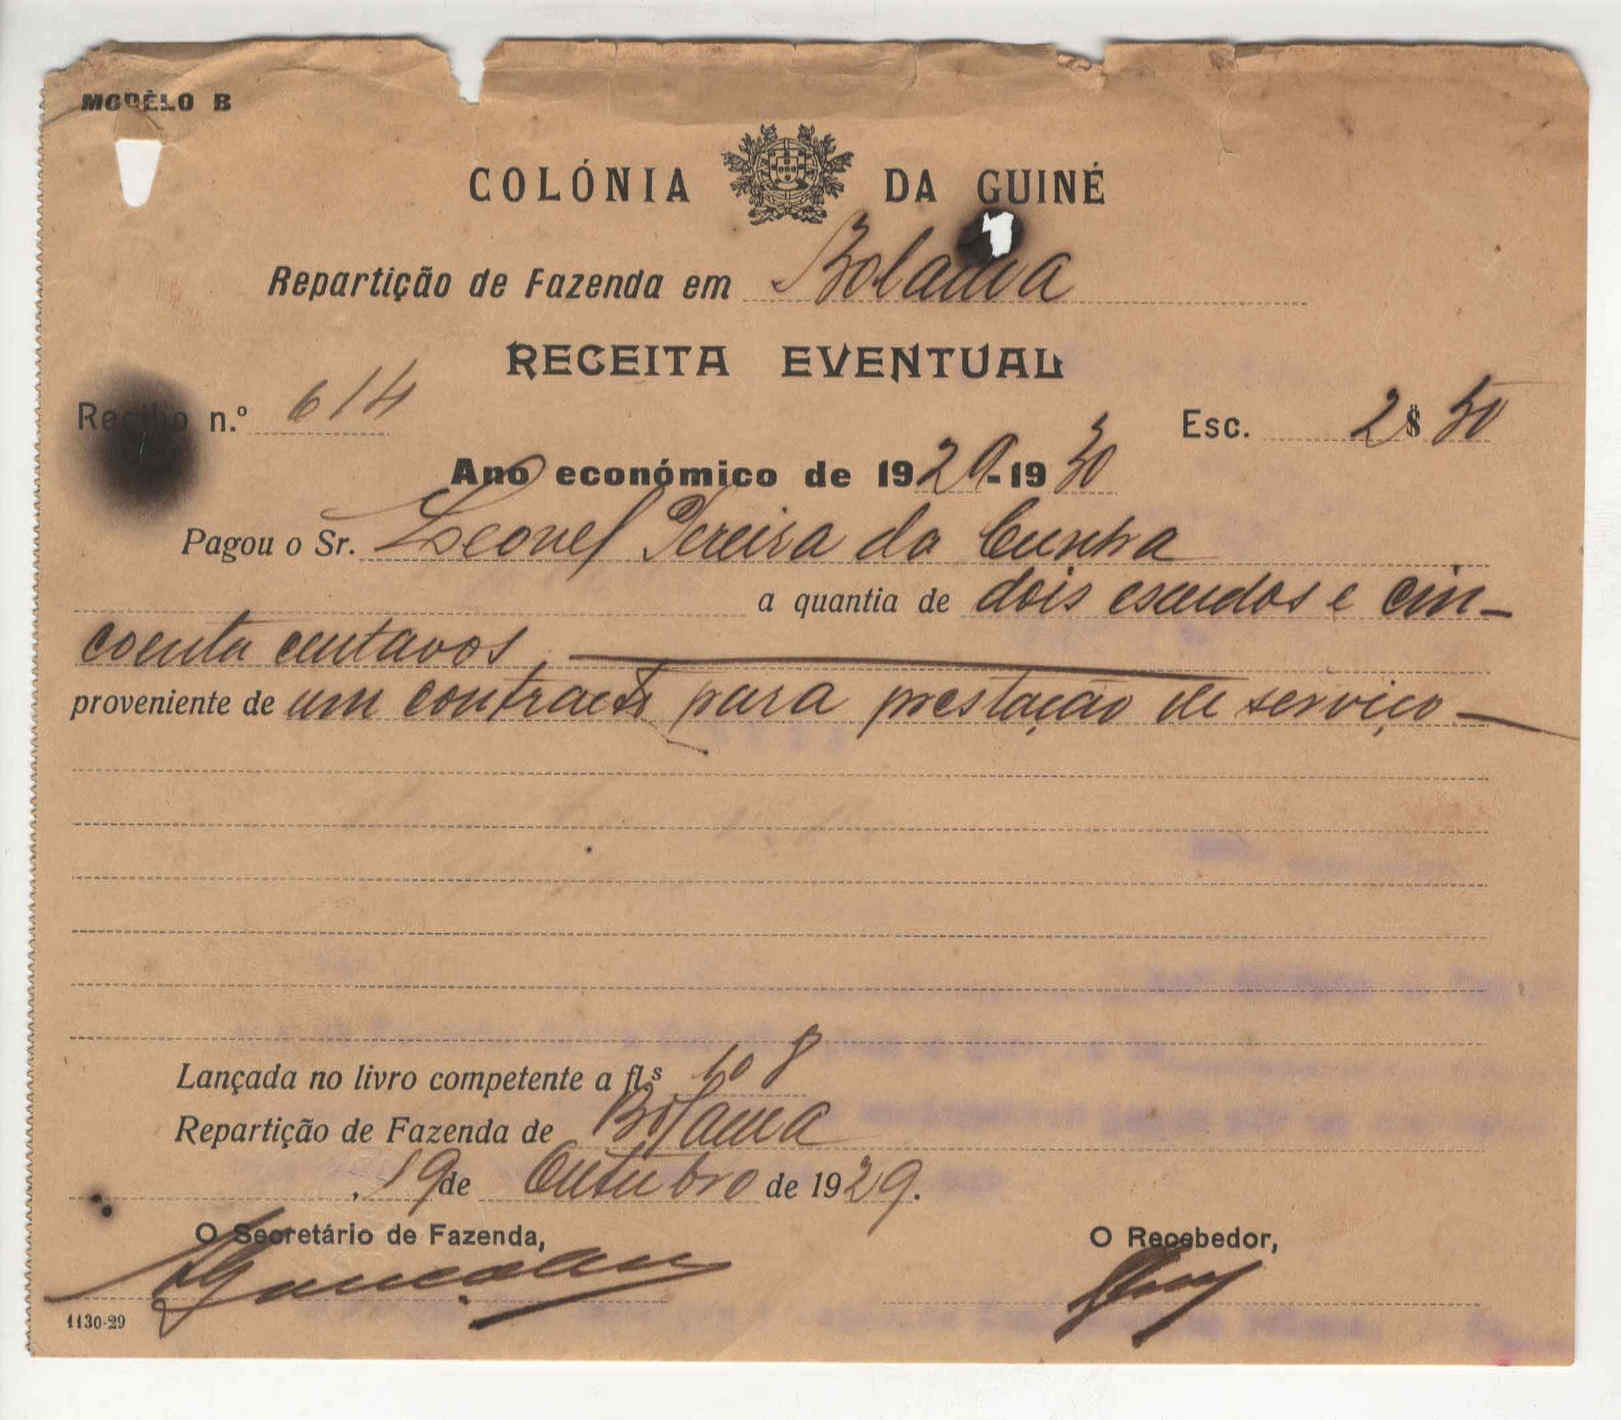 MODÊLO B
COLÓNIA DA GUINÉ
Repartição de Fazenda em Bolama
RECEITA EVENTUAL
Recibo n.º 614
Esc. 2$50
Ano económico de 1929-1930
Pagou o Sr. Leonel Pereira da Cunha
a quantia de dois escudos e cin-
coenta centavos,
proveniente de um contracto para prestação de serviço
Lançada no livro competente a fl.s 108
Repartição de Fazenda de Bolama
, 19 de Outubro de 1929.
O Secretário de Fazenda,
O Recebedor,
1130-29